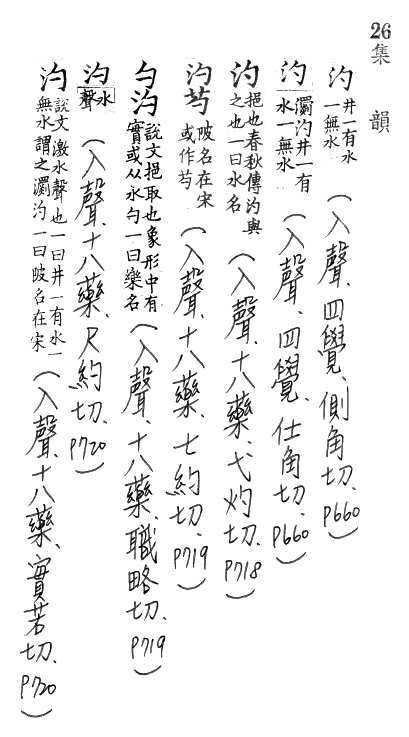 26 集韻
汋 井一有水一無水（入聲、四覺、側角切、P660）
汋 瀱汋井一有水一無水（入聲、四覺、仕角切、P660）
汋 挹也春秋傳汋與之也一曰水名（入聲、十八藥、弋灼切、P718）
汋芍 陂名在宋或作芍（入聲、十八藥、七約切、P719）
勺汋 說文挹取也象形中有實或从水勺一曰樂名（入聲、十八藥、職略切、P719）
汋 水聲（入聲、十八藥、尺約切、P720）
汋 說文激水聲也一曰井一有水一無水謂之瀱汋一曰陂名在宋（入聲、十八藥、實若切、P720）